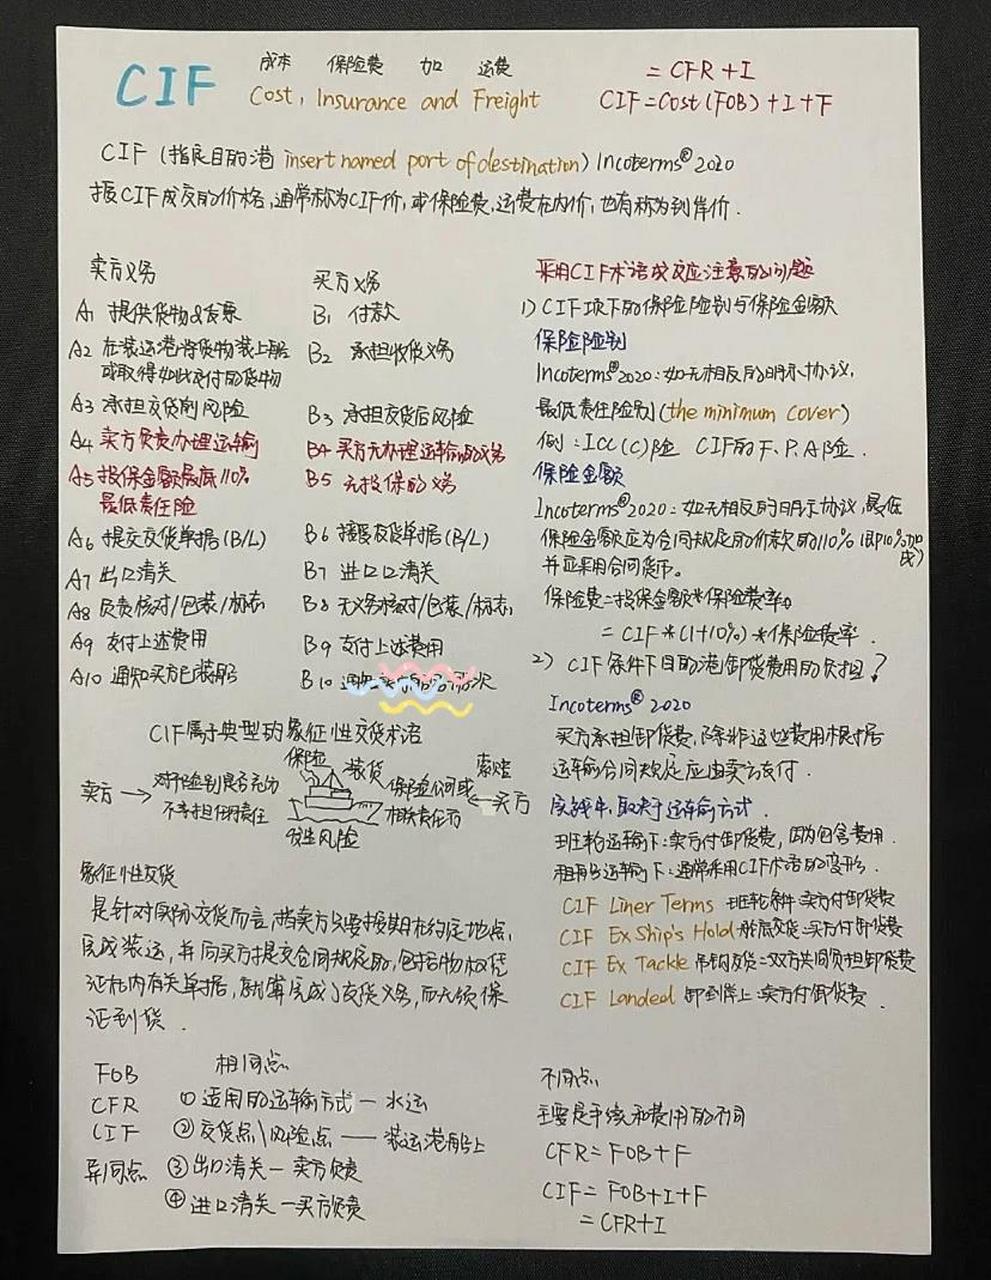 CIF 成本 保险费 加 运费
Cost, Insurance and Freight
= CFR + I
CIF = Cost (FOB) + I + F
CIF (指定目的港 insert named port of destination) Incoterms® 2020
按CIF成交的价格,通常称为CIF价,或保险费,运费在内价,也有称为到岸价.
卖方义务
A1 提供货物&发票
A2 在装运港将货物装上船
或取得如此交付的货物
A3 承担交货前风险
A4 卖方负责办理运输
A5 投保金额最底110%
最低责任险
A6 提交交货单据(B/L)
A7 出口清关
A8 负责核对/包装/标志
A9 支付上述费用
A10 通知买方已装船
买方义务
B1 付款
B2 承担收货义务
B3 承担交货后风险
B4 买方无办理运输的义务
B5 无投保的义务
B6 接受交货单据(B/L)
B7 进口口清关
B8 无义务核对/包装/标志
B9 支付上述费用
B10 通知
CIF属于典型的象征性交货术语
卖方 → 对于险别是否充分
不承担任何责任
保险
装货
发生风险
保险公司或
相关责任方
索赔
← 买方
象征性交货
是针对实际交货而言,指卖方只要按期在约定地点,
完成装运,并向买方提交合同规定的,包括物权凭
证在内有关单据,就算完成了交货义务,而无须保
证到货.
采用CIF术语成交应注意的问题
1) CIF项下的保险险别与保险金额
保险险别
Incoterms® 2020: 如无相反的明示协议,
最低责任险别 (the minimum cover)
例: ICC(C)险 CIF的F.P.A险.
保险金额
Incoterms® 2020: 如无相反的明示协议,最低
保险金额应为合同规定的价款的110% (即10%加成)
并应采用合同货币。
保险费=投保金额*保险费率
= CIF*(1+10%)*保险费率.
2) CIF条件下目的港卸货费用的负担?
Incoterms® 2020
买方承担卸货费,除非这些费用根据
运输合同规定应由卖方支付.
实战中,取决于运输方式.
班轮运输下:卖方付卸货费,因为包含费用.
租船运输下:通常采用CIF术语的变形.
CIF Liner Terms 班轮条件:卖方付卸货费
CIF Ex Ship's Hold 舱底交货:买方付卸货费
CIF Ex Tackle 吊钩交货:双方共同负担卸货费
CIF Landed 卸到岸上:卖方付卸货费.
FOB
CFR
CIF
异同点
相同点
① 适用的运输方式 — 水运
② 交货点\风险点 —— 装运港船上
③ 出口清关 — 卖方负责
④ 进口清关 — 买方负责
不同点
主要是手续和费用的不同
CFR = FOB+F
CIF = FOB+I+F
= CFR+I